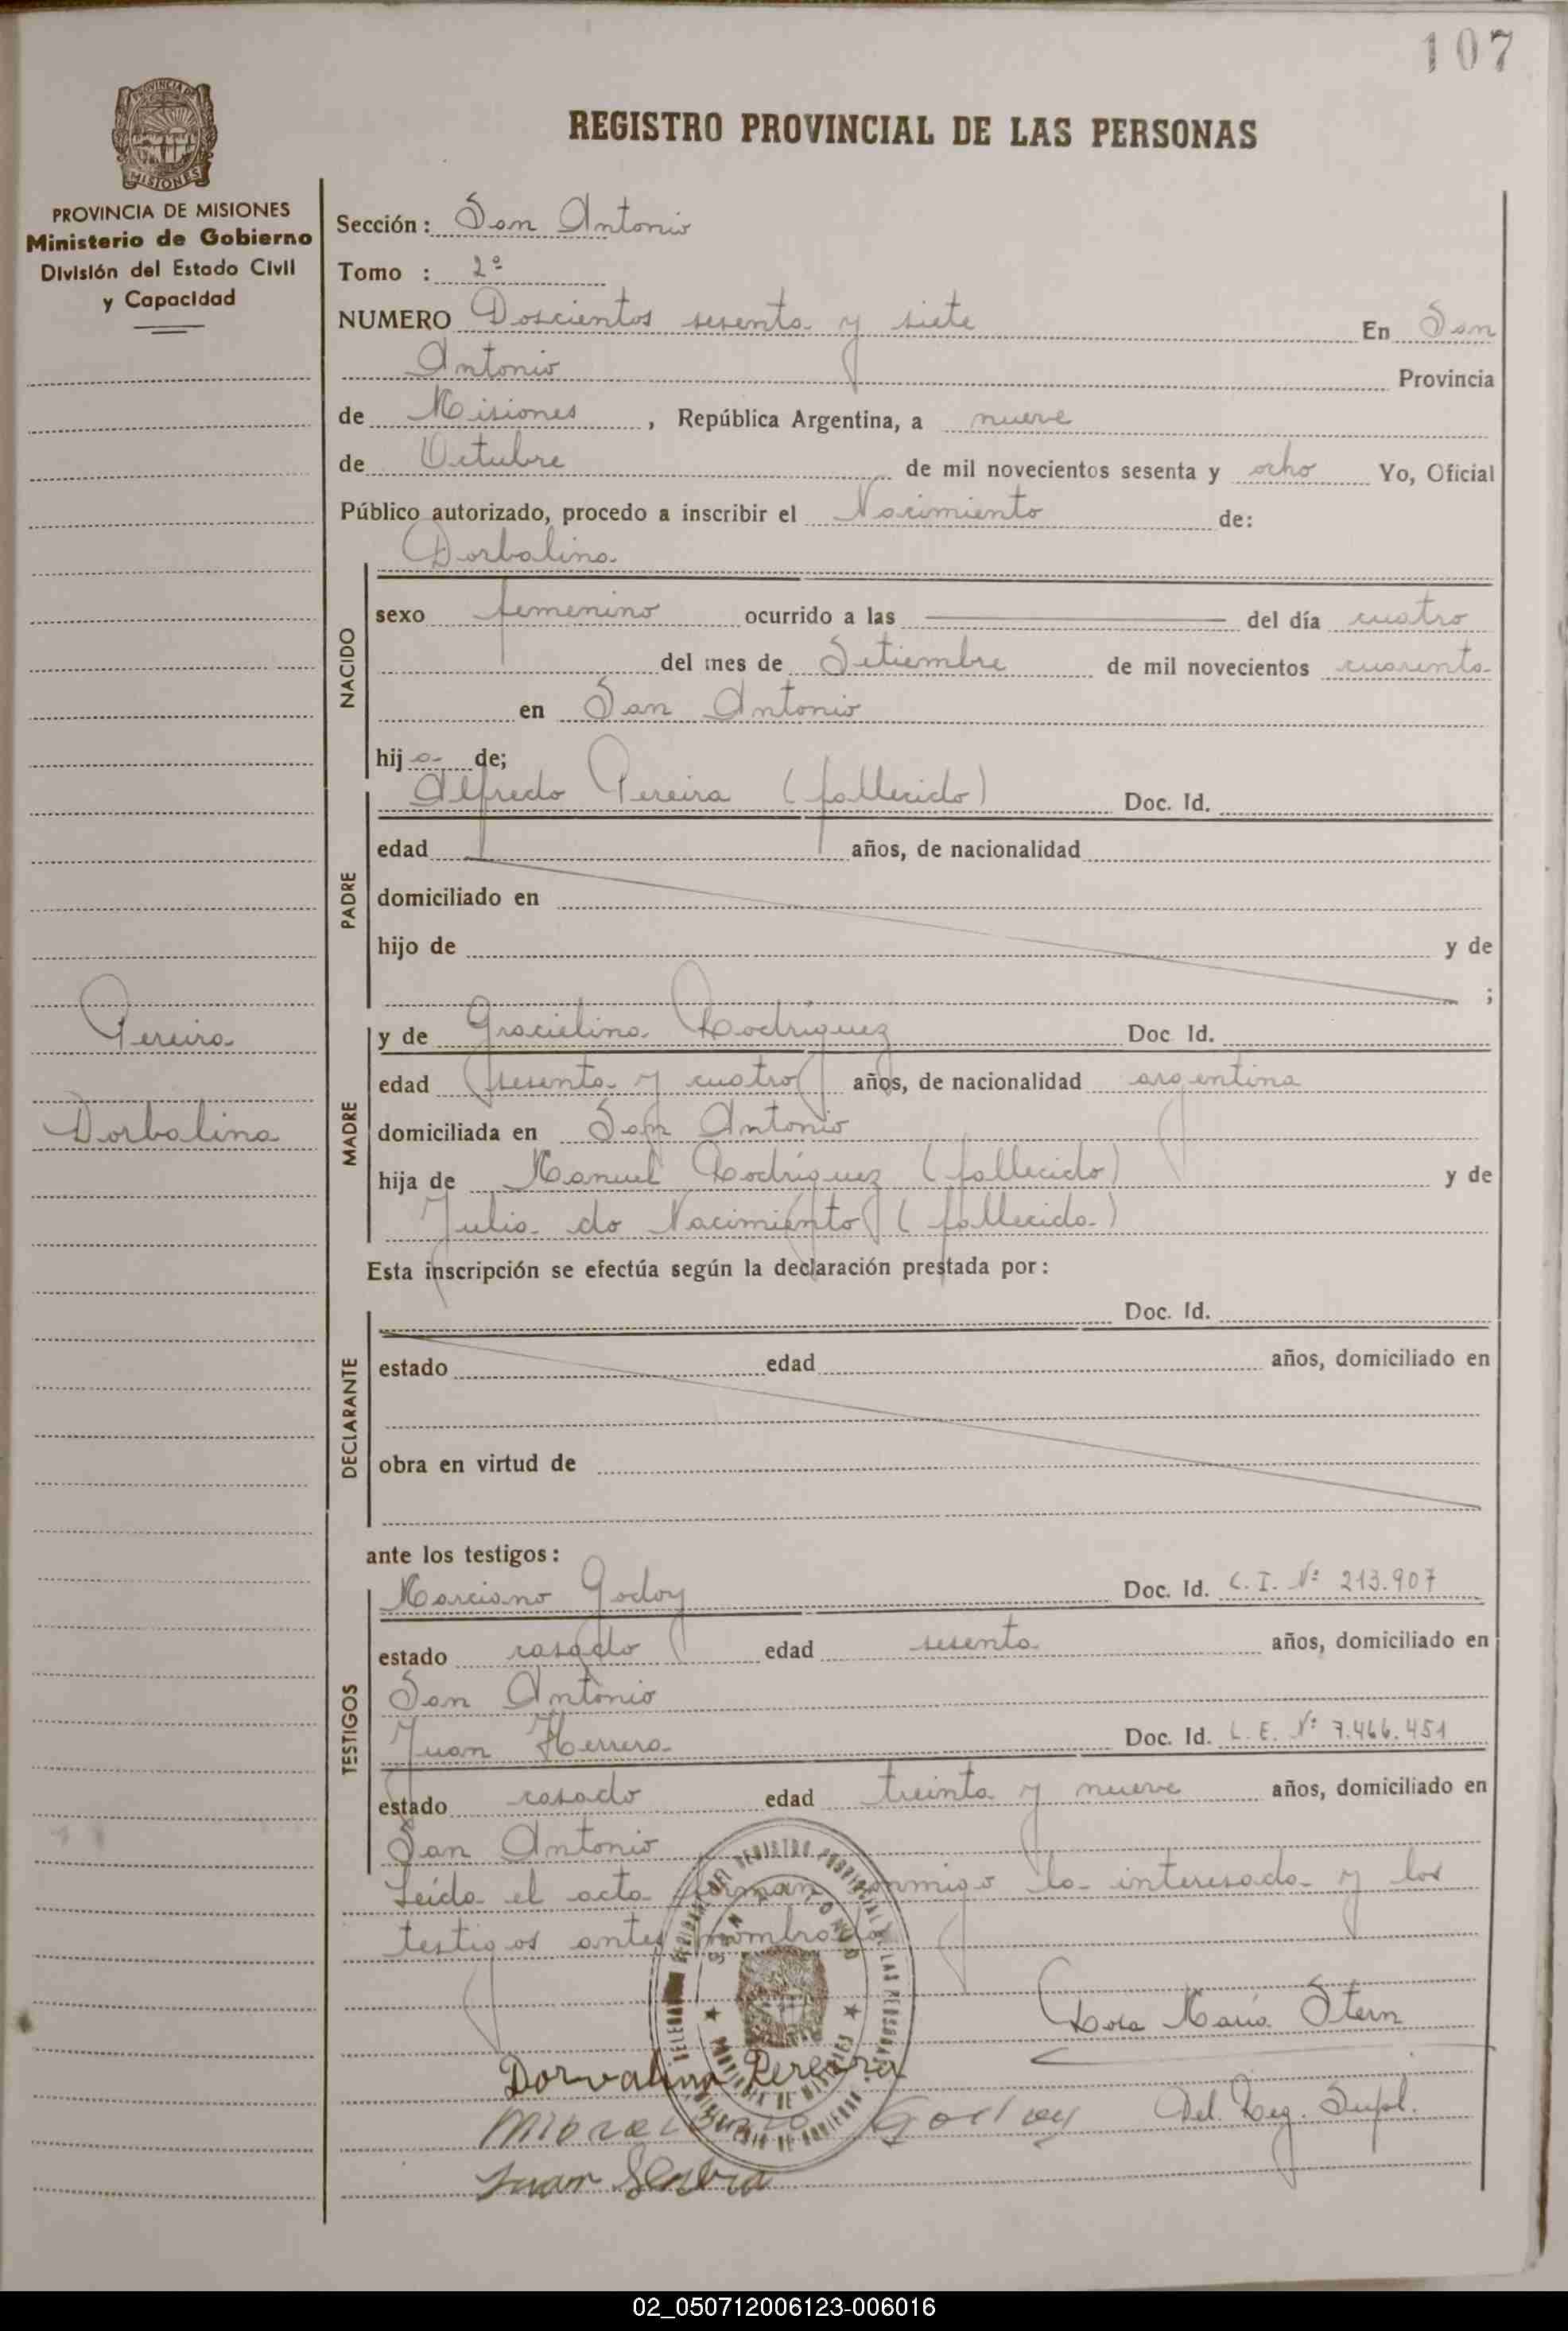 107
REGISTRO PROVINCIAL DE LAS PERSONAS
PROVINCIA DE
MISIONES
PROVINCIA DE MISIONES
Ministerio de Gobierno
División del Estado Civil
y Capacidad
Sección: San Antonio
Tomo : 2º
NUMERO Doscientos sesenta y siete En San
Antonio Provincia
de Misiones , República Argentina, a nueve
de Octubre de mil novecientos sesenta y ocho Yo, Oficial
Público autorizado, procedo a inscribir el Nacimiento de:
NACIDO
Dorbalina
sexo femenino ocurrido a las del día cuatro
del mes de Setiembre de mil novecientos cuarenta
en San Antonio
hija de;
PADRE
Alfredo Pereira (fallecido) Doc. Id.
edad años, de nacionalidad
domiciliado en
hijo de y de
;
Pereira
Dorbalina
MADRE
y de Gracielina Rodríguez Doc Id.
edad sesenta y cuatro años, de nacionalidad argentina
domiciliada en San Antonio
hija de Manuel Rodríguez (fallecido) y de
Julia do Nacimiento (fallecida)
Esta inscripción se efectúa según la declaración prestada por:
DECLARANTE
Doc. Id.
estado edad años, domiciliado en
obra en virtud de
ante los testigos:
TESTIGOS
Marciano Godoy Doc. Id. C. I. Nº 213.907
estado casado edad sesenta años, domiciliado en
San Antonio
Juan Herrera Doc. Id. L. E. Nº 7.466.451
estado casado edad treinta y nueve años, domiciliado en
San Antonio
Leída el acta firman conmigo la interesada y los
testigos antes nombrados
Rosa María Stern
Dorvalina Pereira
Del. Reg. Supl.
Godoy
Juan
02_050712006123-006016